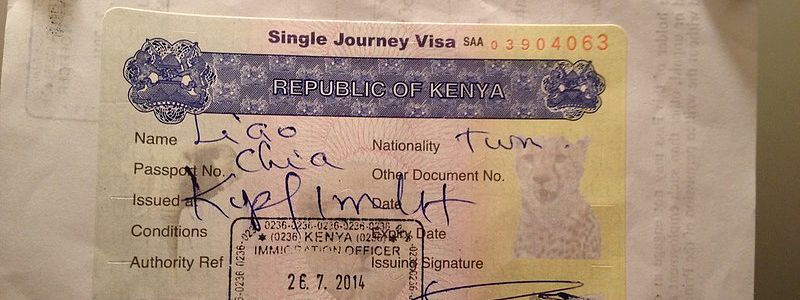 Single Journey Visa SAA 03904063
REPUBLIC OF KENYA
Name Liao Nationality Twn.
Chia
Passport No. Other Document No.
Issued at Date
Conditions Expiry Date
Authority Ref Issuing Signature
0236-0236-0236-0236-0236
* (0236) KENYA (0236) *
IMMIGRATION OFFICER
26. 7. 2014